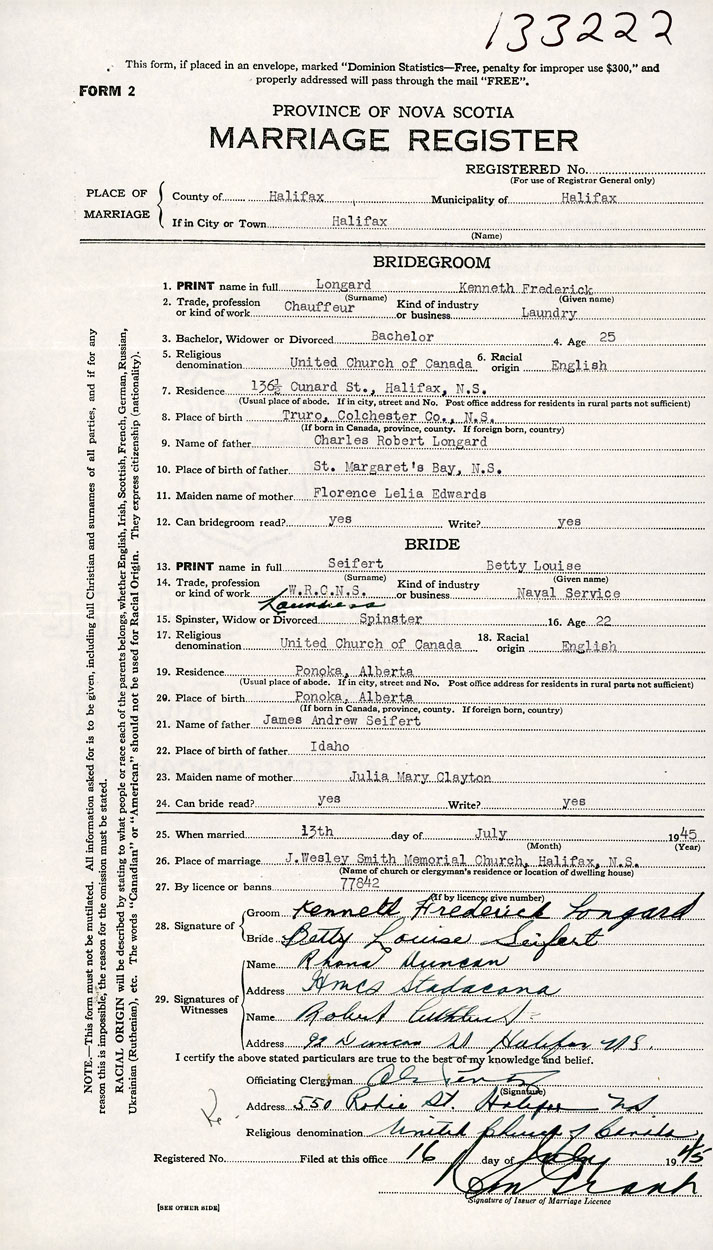 133222
This form, if placed in an envelope, marked "Dominion Statistics—Free, penalty for improper use $300," and
properly addressed will pass through the mail "FREE".
FORM 2
PROVINCE OF NOVA SCOTIA
MARRIAGE REGISTER
REGISTERED No.
(For use of Registrar General only)
PLACE OF MARRIAGE
County of Halifax Municipality of Halifax
If in City or Town Halifax
(Name)
BRIDEGROOM
1. PRINT name in full Longard Kenneth Frederick
(Surname) (Given name)
2. Trade, profession or kind of work Chauffeur Kind of industry or business Laundry
3. Bachelor, Widower or Divorced Bachelor 4. Age 25
5. Religious denomination United Church of Canada 6. Racial origin English
7. Residence 136½ Cunard St., Halifax, N.S.
(Usual place of abode. If in city, street and No. Post office address for residents in rural parts not sufficient)
8. Place of birth Truro, Colchester Co., N.S.
(If born in Canada, province, county. If foreign born, country)
9. Name of father Charles Robert Longard
10. Place of birth of father St. Margaret's Bay, N.S.
11. Maiden name of mother Florence Lelia Edwards
12. Can bridegroom read? yes Write? yes
BRIDE
13. PRINT name in full Seifert Betty Louise
(Surname) (Given name)
14. Trade, profession or kind of work W.R.C.N.S. Kind of industry or business Naval Service
Laundress
15. Spinster, Widow or Divorced Spinster 16. Age 22
17. Religious denomination United Church of Canada 18. Racial origin English
19. Residence Ponoka, Alberta
(Usual place of abode. If in city, street and No. Post office address for residents in rural parts not sufficient)
20. Place of birth Ponoka, Alberta
(If born in Canada, province, county. If foreign born, country)
21. Name of father James Andrew Seifert
22. Place of birth of father Idaho
23. Maiden name of mother Julia Mary Clayton
24. Can bride read? yes Write? yes
25. When married 13th day of July 1945
(Month) (Year)
26. Place of marriage J.Wesley Smith Memorial Church, Halifax, N.S.
(Name of church or clergyman's residence or location of dwelling house)
27. By licence or banns 77842
(If by licence, give number)
28. Signature of
Groom Kenneth Frederick Longard
Bride Betty Louise Seifert
29. Signatures of Witnesses
Name Rhona Duncan
Address HMCS Stadacona
Name Robert Cuthbert
Address 92 Duncan St Halifax N.S.
I certify the above stated particulars are true to the best of my knowledge and belief.
Officiating Clergyman
(Signature)
Address 550 St. Halifax NS
Religious denomination United Church of Canada
Registered No. Filed at this office 16 day of July 1945
Signature of Issuer of Marriage Licence
[SEE OTHER SIDE]
NOTE.—This form must not be mutilated. All information asked for is to be given, including full Christian and surnames of all parties, and if for any
reason this is impossible, the reason for the omission must be stated.
RACIAL ORIGIN will be described by stating to what people or race each of the parents belongs, whether English, Irish, Scottish, French, German, Russian,
Ukrainian (Ruthenian), etc. The words "Canadian" or "American" should not be used for Racial Origin. They express citizenship (nationality).